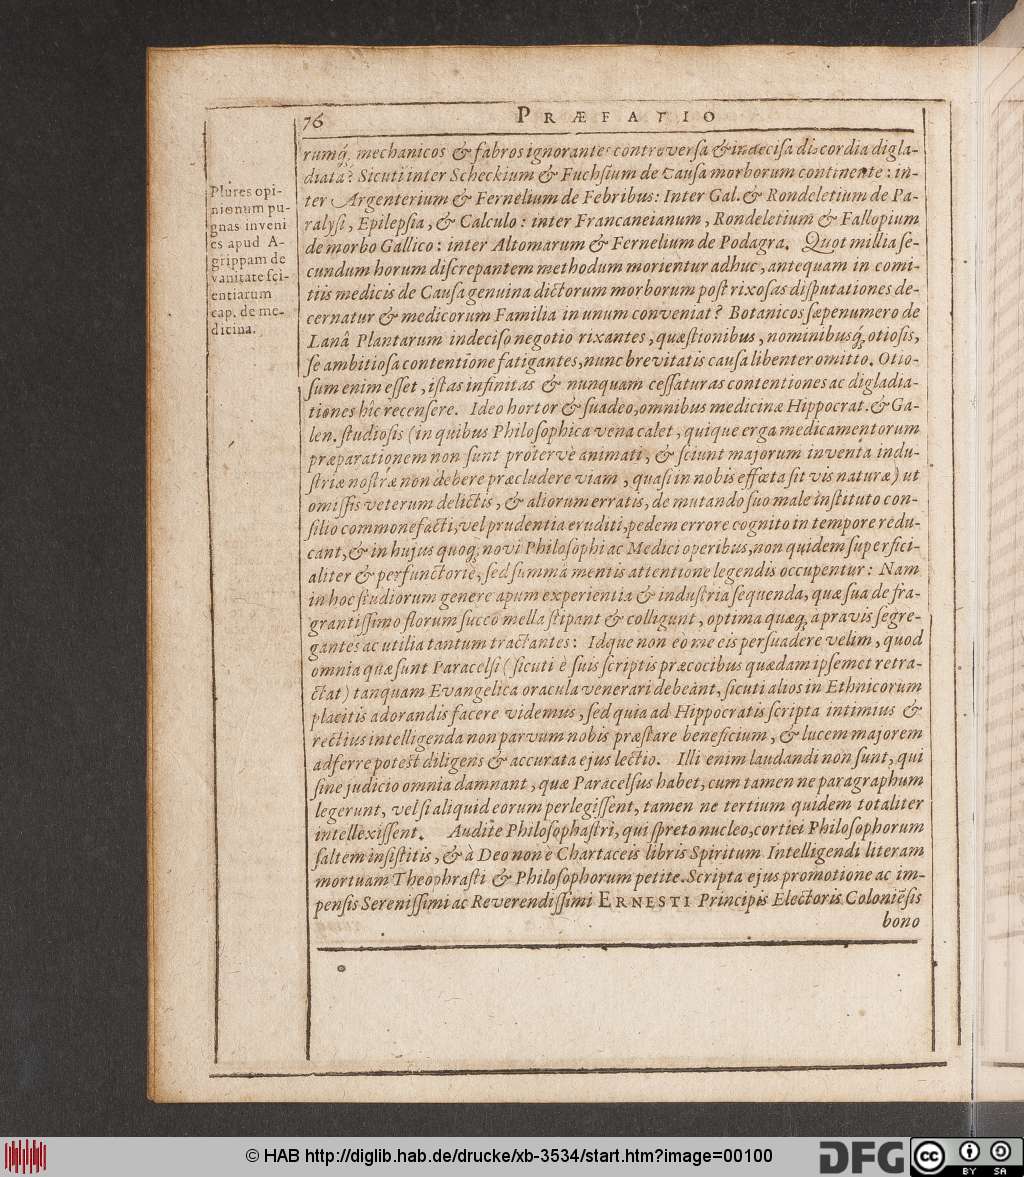 76 PRÆFATIO
rumq́; mechanicos & fabros ignorantes controversa & indecisa discordia digla-
diata? Sicuti inter Scheckium & Fuchsium de Causa morborum continente: in-
ter Argenterium & Fernelium de Febribus: Inter Gal. & Rondeletium de Pa-
ralysi, Epilepsia, & Calculo: inter Francaneianum, Rondeletium & Fallopium
de morbo Gallico: inter Altomarum & Fernelium de Podagra. Quot millia se-
cundum horum discrepantem methodum morientur adhuc, antequam in comi-
tiis medicis de Causa genuina dictorum morborum post rixosas disputationes de-
cernatur & medicorum Familia in unum conveniat? Botanicos sæpenumero de
Lanâ Plantarum indeciso negotio rixantes, quæstionibus, nominibusq́; otiosis,
se ambitiosa contentione fatigantes, nunc brevitatis causa libenter omitto. Otio-
sum enim esset, istas infinitas & nunquam cessaturas contentiones ac digladia-
tiones hîc recensere. Ideo hortor & suadeo, omnibus medicinæ Hippocrat. & Ga-
len. studiosis (in quibus Philosophica vena calet, quique erga medicamentorum
præparationem non sunt protervè animati, & sciunt majorum inventa indu-
striæ nostræ non debere præcludere viam, quasi in nobis effœta sit vis naturæ) ut
omissis veterum delictis, & aliorum erratis, de mutando suo male instituto con-
silio commonefacti, vel prudentia eruditi, pedem errore cognito in tempore redu-
cant, & in hujus quoq; novi Philosophi ac Medici operibus, non quidem superfici-
aliter & perfunctoriè, sed summâ mentis attentione legendis occupentur: Nam
in hoc studiorum genere apum experientia & industria sequenda, quæ sua de fra-
grantissimo florum succo mella stipant & colligunt, optima quæq; a pravis segre-
gantes ac utilia tantum tractantes: Idque non eo me eis persuadere velim, quod
omnia quæ sunt Paracelsi (sicuti è suis scriptis præcocibus quædam ipsemet retra-
ctat) tanquam Evangelica oracula venerari debeant, sicuti alios in Ethnicorum
placitis adorandis facere videmus, sed quia ad Hippocratis scripta intimius &
rectius intelligenda non parvum nobis præstare beneficium, & lucem majorem
adferre potest diligens & accurata ejus lectio. Illi enim laudandi non sunt, qui
sine judicio omnia damnant, quæ Paracelsus habet, cum tamen ne paragraphum
legerunt, vel si aliquid eorum perlegissent, tamen ne tertium quidem totaliter
intellexissent. Audite Philosophastri, qui spreto nucleo, cortici Philosophorum
saltem insistitis, & à Deo non è Chartaceis libris Spiritum Intelligendi literam
mortuam Theophrasti & Philosophorum petite. Scripta ejus promotione ac im-
pensis Serenissimi ac Reverendissimi ERNESTI Principis Electoris Coloniensis
bono
Plures opi-
nionum pu-
gnas inveni
es apud A-
grippam de
vanitate sci-
entiarum
cap. de me-
dicina.
© HAB http://diglib.hab.de/drucke/xb-3534/start.htm?image=00100
DFG
cc BY SA